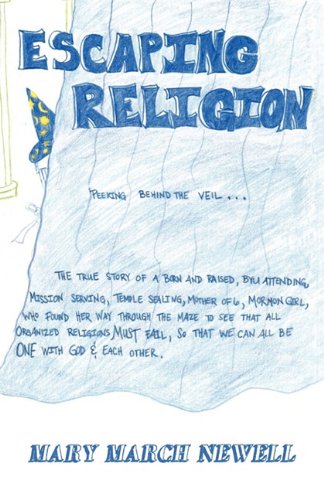 ESCAPING
RELIGION
PEEKING BEHIND THE VEIL...
THE TRUE STORY OF A BORN AND RAISED, BYU ATTENDING,
MISSION SERVING, TEMPLE SEALING, MOTHER OF 6, MORMON GIRL,
WHO FOUND HER WAY THROUGH THE MAZE TO SEE THAT ALL
ORGANIZED RELIGIONS MUST FAIL, SO THAT WE CAN ALL BE
ONE WITH GOD & EACH OTHER.
MARY MARCH NEWELL